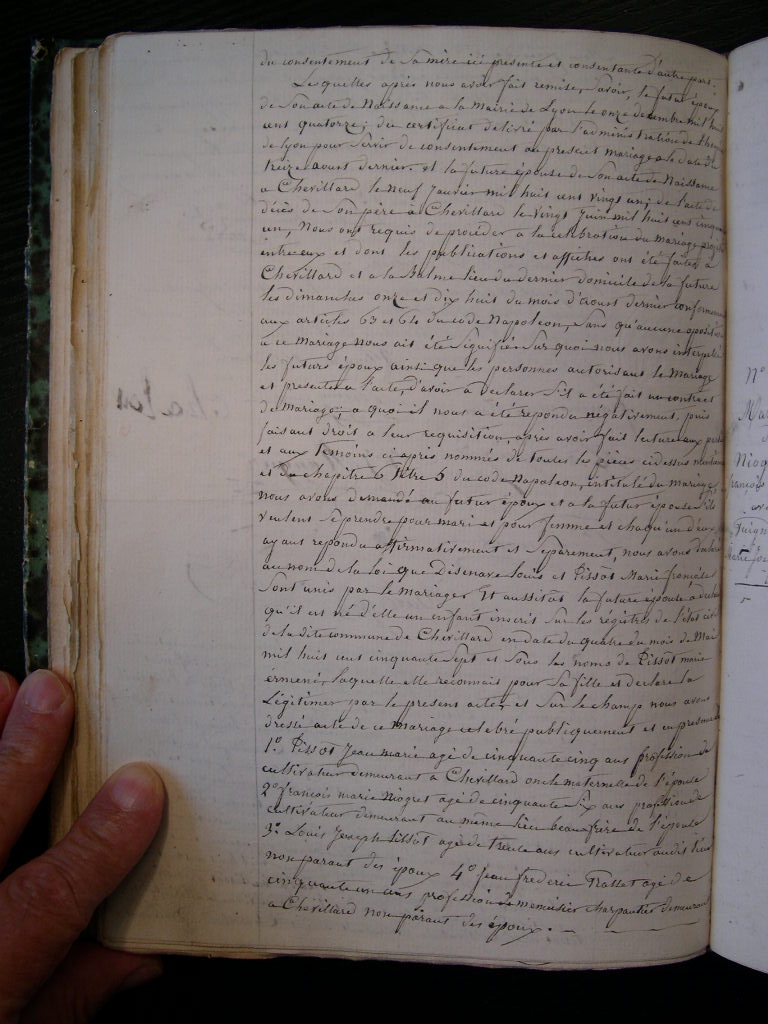 du consentement de sa mère ici présente et consentante d'autre part.
Lesquelles après nous avoir fait remise, savoir, le futur époux
de son acte de Naissance a la Mairie de Lyon le onze decembre mil huit
cent quatorze; du certificat delivré par l'administration de
de Lyon pour servir de consentement au present mariage a la date du
treize aoust dernier. et la future épouse de son acte de Naissance
a Chevillard le Neuf Janvier mil huit cent vingt un; de l'acte de
décès de son père a Chevillard le vingt Juin mil huit cent cinquante
un, Nous ont requis de procéder a la celebration du mariage projeté
entre eux et dont les publications et affiches ont été faites a
Chevillard et a la Balme lieu du dernier domicile de la future
les dimanches onze et dix huit du mois d'aoust dernier conformément
aux articles 63 et 64 du code Napoleon, sans qu'aucune oposition
a ce Mariage nous ait été signifiée. Sur quoi nous avons interpellé
les futurs époux ainsi que les personnes autorisant le Mariage
et presentes a l'acte, d'avoir a declarer s'il a été fait un contrat
de mariage; a quoi il nous a été repondu négativement, puis
faisant droit a leur requisition, après avoir fait lecture aux parties
et aux temoins ci après nommés de toutes les pièces ci dessus mentionnées
et du chapitre 6 titre 5 du code Napoleon, intitulé du mariage,
nous avons demandé au futur époux et a la futur épouse s'ils
veulent se prendre pour mari et pour femme et chaqu'un d'eux
ayant repondu affirmativement et séparement, nous avons declaré
au nom de la loi que Disenave Louis et Pissot Marie
sont unis par le mariage. Et aussitot la future épouse a declaré
qu'il est né d'elle un enfant inscrit sur les registres de l'état civil
de la dite commune de Chevillard en date du quatre du mois de Mai
mil huit cent cinquante sept et sous les noms de Pissot marie
ermené, laquelle elle reconnait pour sa fille et declare la
Légitimer par le present acte, et sur le champ nous avons
dressé acte de ce mariage celebré publiquement et en presence de
1.° Pissot Jean marie agé de cinquante cinq ans profession de
cultivateur demeurant a Chevillard oncle maternelle de l'épouse
2.° francois marie Niogret agé de cinquante six ans profession de
cultivateur demeurant au même lieu beau frère de l'épouse
3.° Louis Joseph Pissot agé de trente ans cultivateur audit lieu
non parant des époux 4.° Jean frederic agé de
cinquante un ans profession de menuisier charpantier demeurant
a Chevillard non parant des époux.
N°
Mar
Niog
françois